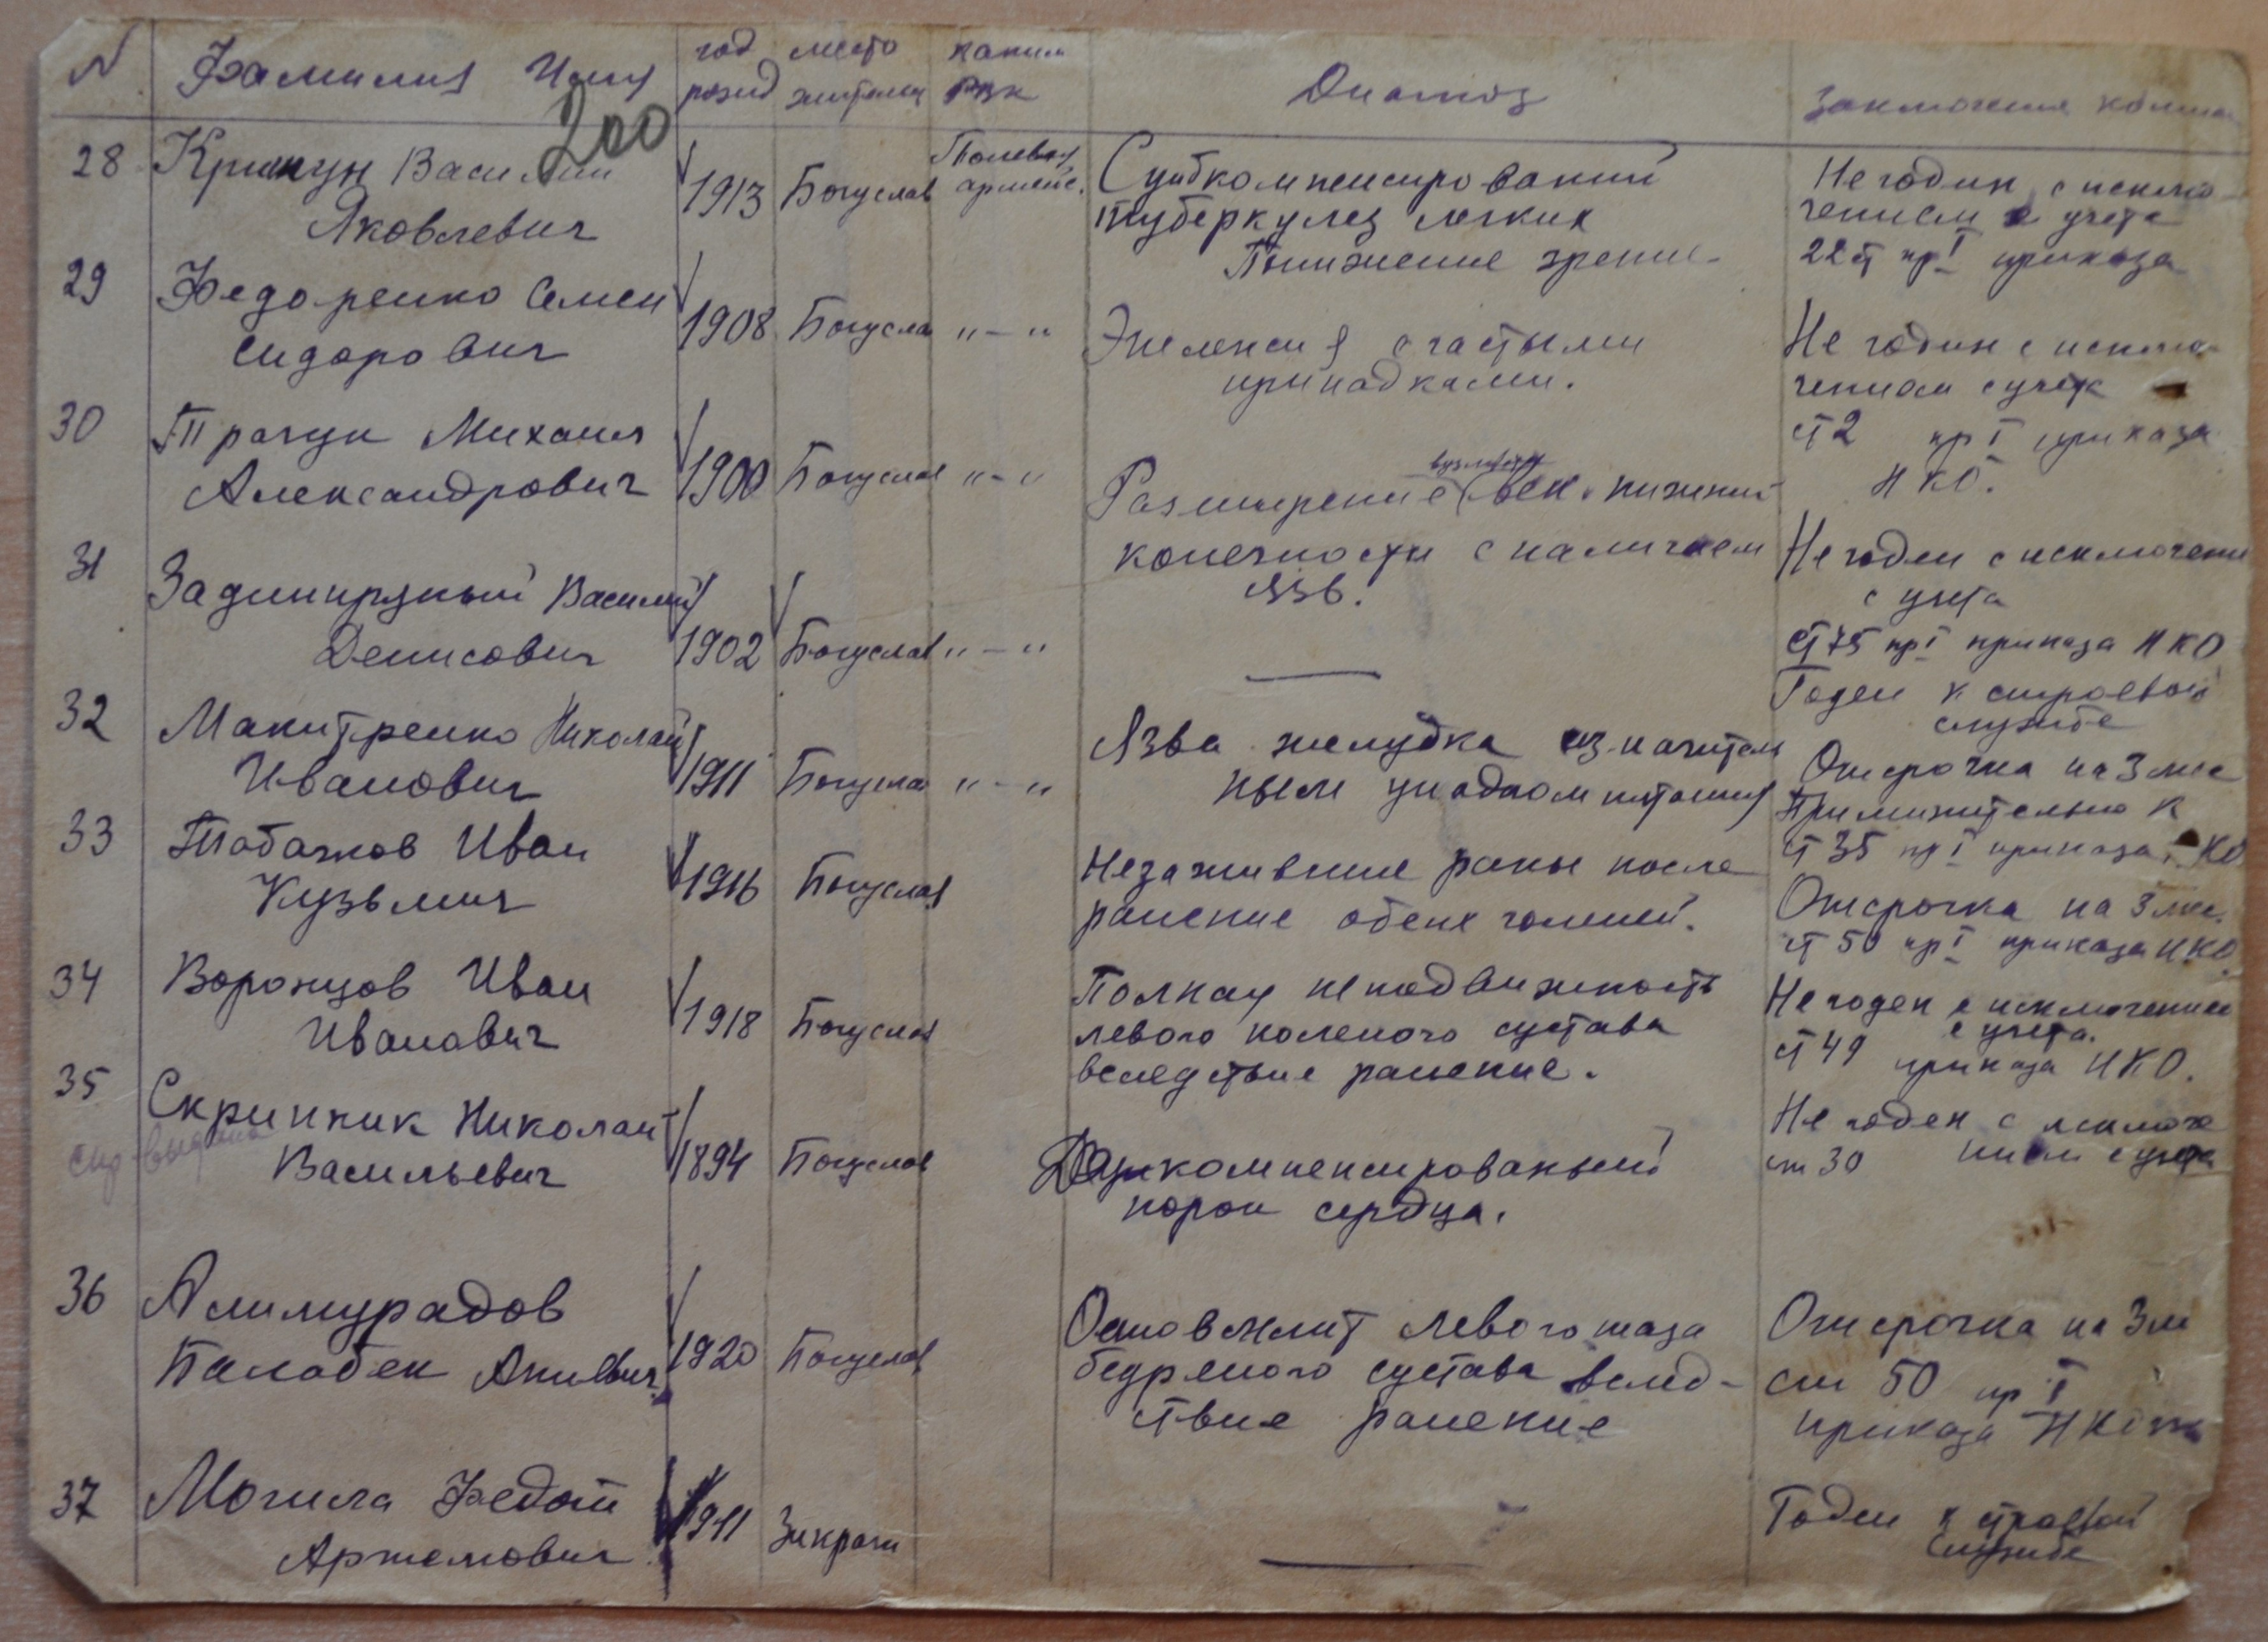 N Фамилия Имя год рожд место жительс каким РВК Диагноз Заключение комисс
200
28 Крикун Василий Яковлевич 1913 Богуслав Полевая армейс. Субкомпенсировании туберкулез легких Понижение зрение Негодин с исключением с учета 22 ст гр I приказа
29 Федоренко Семен Сидорович 1908 Богуслав "-" Эпелепсия с частыми припадками. Не годин с исключением с учета ст 2 гр I приказа НКО.
30 Трагун Михаил Александрович 1900 Богуслав "-" Разширение вен нижний конечности с наличаем язв. Не годен с исключени с учета ст 75 гр I приказа НКО
31 Василий Денисович 1902 Богуслав "-" — Годен к строевой службе
32 Макитренко Николай Иванович 1911 Богуслав "-" Язва желудка из начитель ным упадком питания Отсрочка на 3 мес Применительно к ст 35 гр I приказа НКО
33 Табачков Иван Кузьмич 1916 Богуслав Незажившие раны после ранение обеих голеней. Отсрочка на 3 мес. ст 50 гр I приказа НКО
34 Воронцов Иван Иванович 1918 Богуслав Полная неподвижность левого коленого сустава вследствие ранение. Не годен с исключением с учета. ст 49 приказа НКО.
35 Скрипник Николай Васильевич 1894 Богуслав Декомпенсированый порок сердца. Не годен с исключе нием с учета ст 30
спр выдана
36 Алимурадов Балабек 1920 Богуслав левого таза бедреного сустава вслед- ствие ранение Отсрочка на 3 м ст 50 гр I приказа НКО
37 Могила Федот Артемович 1911 — Годен к строевой службе